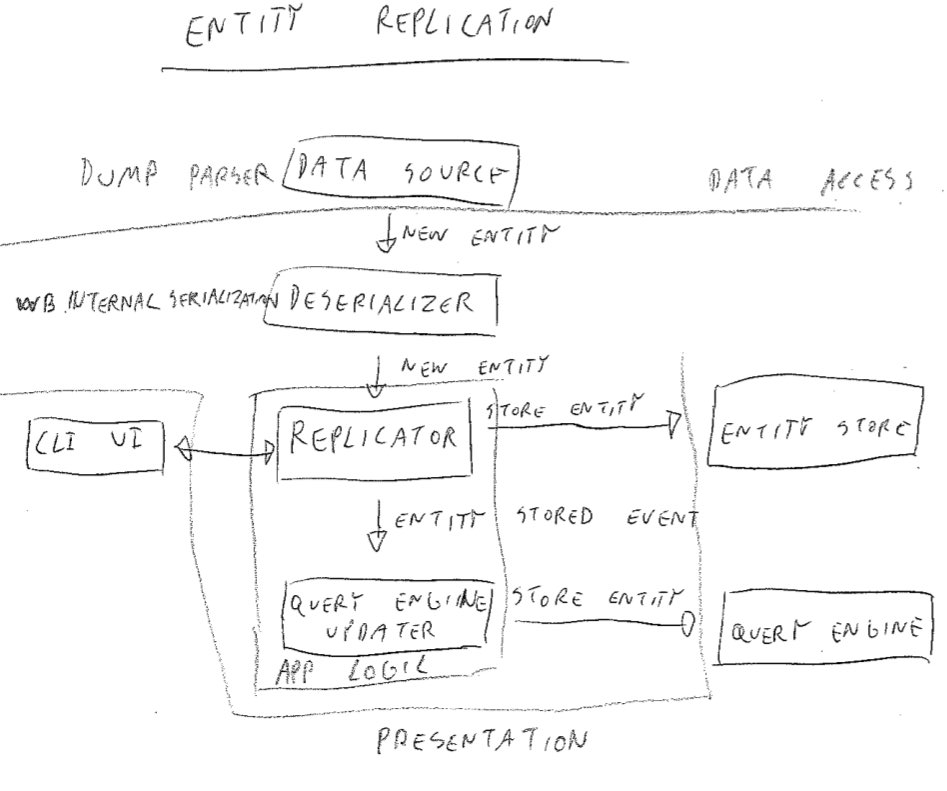 ENTITY REPLICATION
DUMP PARSER DATA SOURCE DATA ACCESS
NEW ENTITY
WB INTERNAL SERIALIZATION DESERIALIZER
NEW ENTITY
CLI UI REPLICATOR STORE ENTITY ENTITY STORE
ENTITY STORED EVENT
QUERY ENGINE STORE ENTITY
UPDATER QUERY ENGINE
APP LOGIC
PRESENTATION